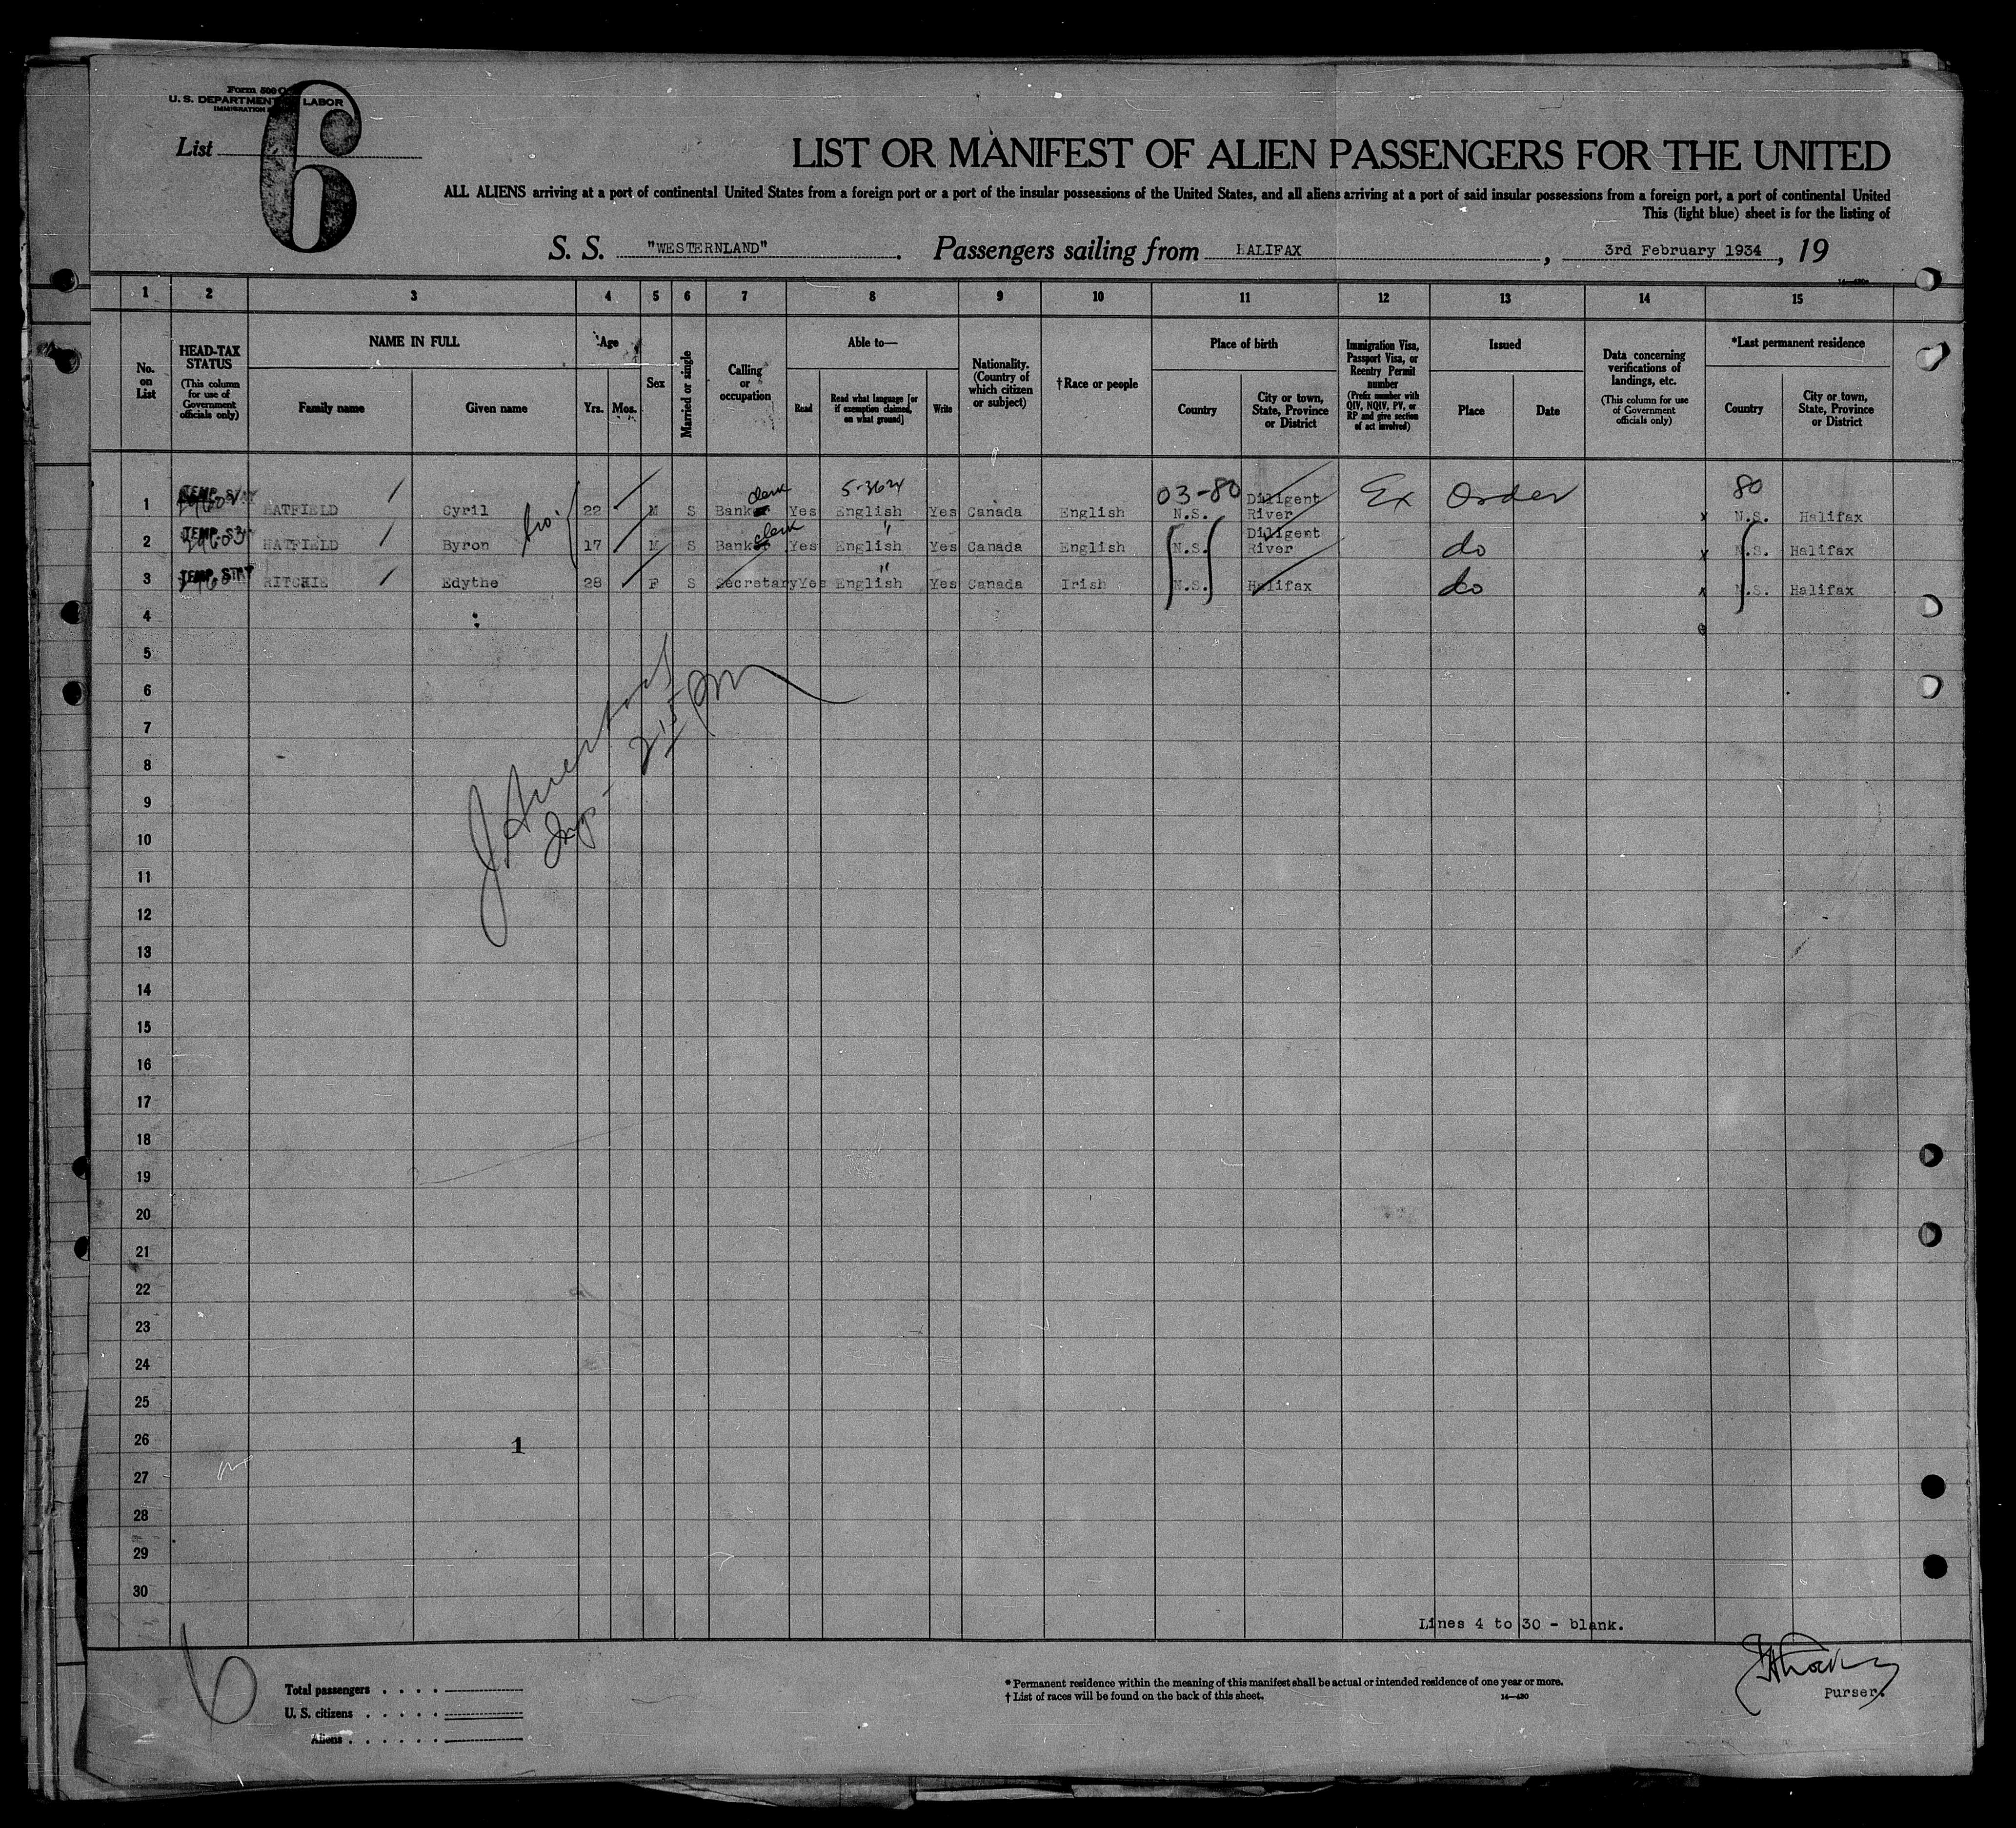 Form 500
U. S. DEPARTMENT LABOR
IMMIGRATION
List 6
LIST OR MANIFEST OF ALIEN PASSENGERS FOR THE UNITED
ALL ALIENS arriving at a port of continental United States from a foreign port or a port of the insular possessions of the United States, and all aliens arriving at a port of said insular possessions from a foreign port, a port of continental United
This (light blue) sheet is for the listing of
S. S. "WESTERNLAND" . Passengers sailing from HALIFAX , 3rd February 1934 , 19
1 2 3 4 5 6 7 8 9 10 11 12 13 14 15
No. on List
HEAD-TAX STATUS
(This column for use of Government officials only)
NAME IN FULL
Family name
Given name
Age
Yrs. Mos.
Sex
Married or single
Calling or occupation
Able to—
Read
Read what language [or if exemption claimed, on what ground]
Write
Nationality. (Country of which citizen or subject)
†Race or people
Place of birth
Country
City or town, State, Province or District
Immigration Visa, Passport Visa, or Reentry Permit number
(Prefix number with QIV, NQIV, PV, or RP and give section of act involved)
Issued
Place
Date
Data concerning verifications of landings, etc.
(This column for use of Government officials only)
*Last permanent residence
Country
City or town, State, Province or District
clerk 5-3624 03-80 Ex Order 80
1 TEMP. STAY HATFIELD Cyril bro. 22 M S Bank Yes English Yes Canada English N.S. Diligent River x N.S. Halifax
clerk "
2 TEMP. STAY HATFIELD Byron 17 M S Bank Yes English Yes Canada English N.S. Diligent River do x N.S. Halifax
"
3 TEMP. STAY RITCHIE Edythe 28 F S Secretary Yes English Yes Canada Irish N.S. Halifax do x N.S. Halifax
4
5
6
7
8
9
10
11
12
13
14
15
16
17
18
19
20
21
22
23
24
25
26 1
27
28
29
30
Insp- 2 15 PM
Lines 4 to 30 - blank.
6
Total passengers
U. S. citizens
Aliens
* Permanent residence within the meaning of this manifest shall be actual or intended residence of one year or more.
† List of races will be found on the back of this sheet.
14—430
Purser.